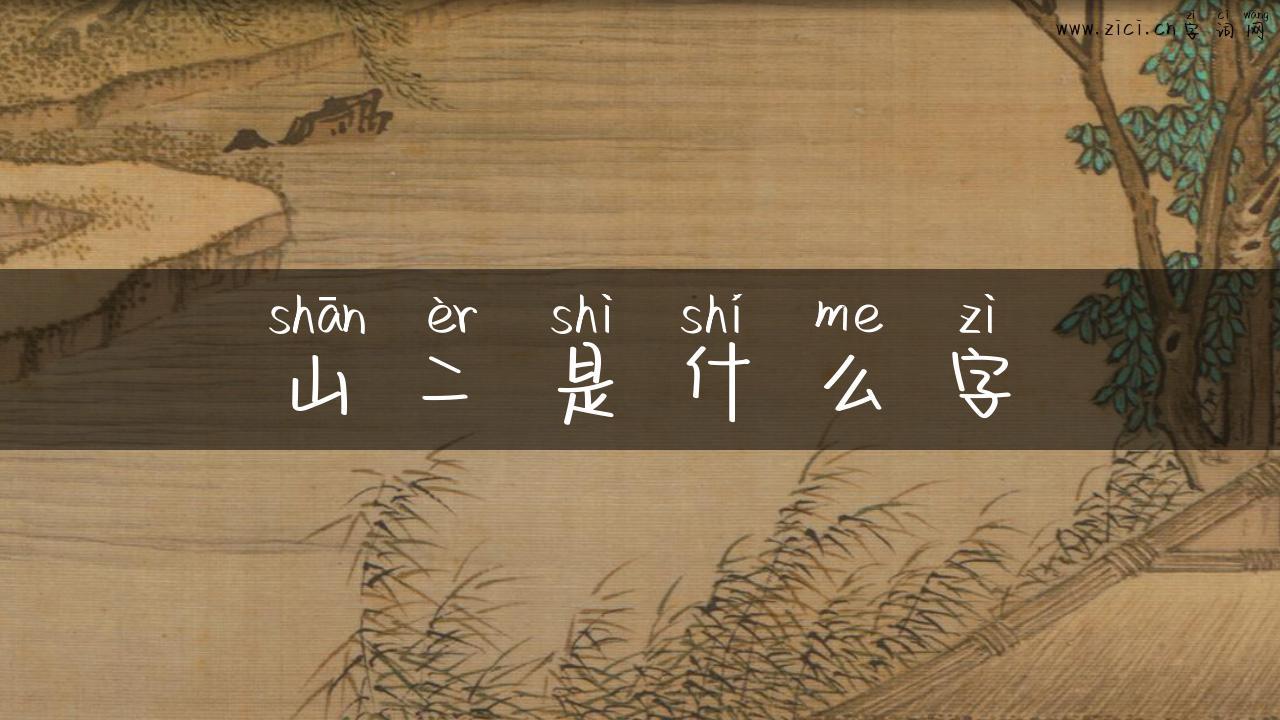 zì cí wǎng
www.zici.cn字词网
shān èr shì shí me zì
山二是什么字